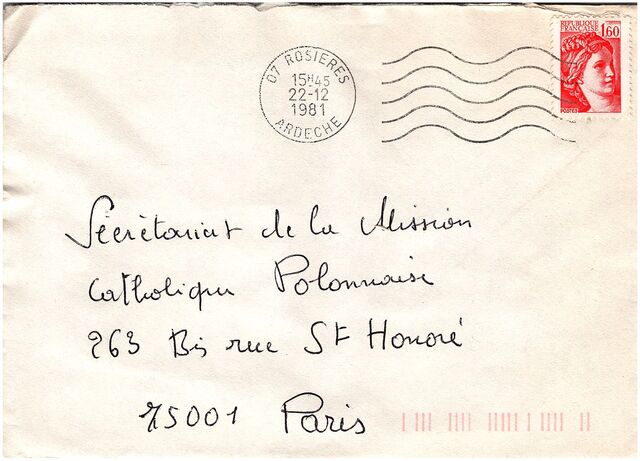 REPUBLIQUE
FRANÇAISE 1,60
POSTES
07 ROSIERES
15H45
22-12
1981
ARDECHE
Sécrétariat de la Mission
Catholique Polonnaise
263 Bis rue St Honoré
75001 Paris